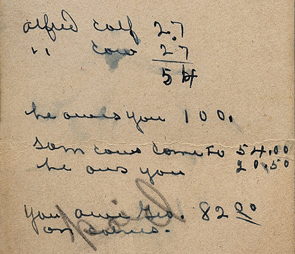 alfred calf 2.7
" cow 2.7
54
he owes you 100.
Sam cows come to 54.00
he ows you 20.50
you owe Geo. 82 00
on cows.
paid